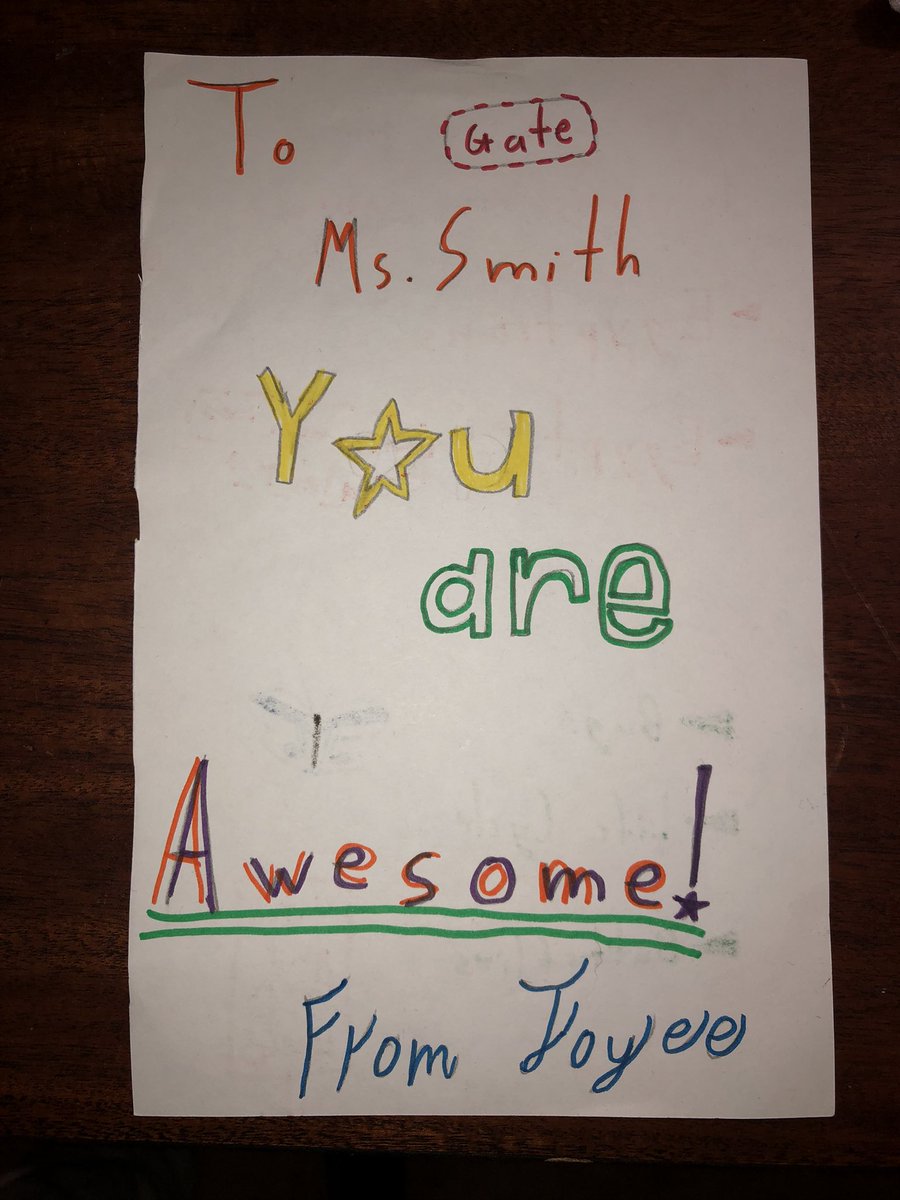 To
Gate
Ms. Smith
You
are
Awesome!
From Joyee